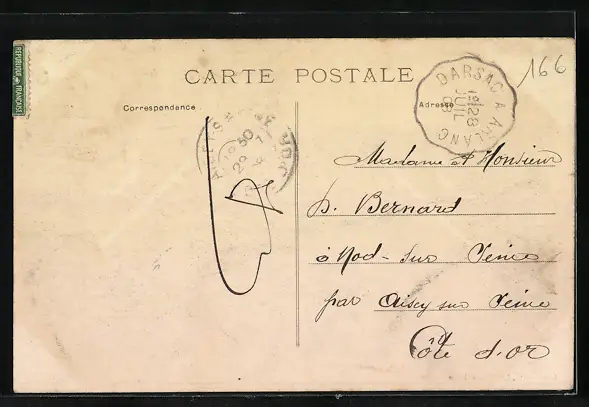 REPUBLIQUE FRANÇAISE
166
CARTE POSTALE
Correspondance
Adresse
DARSAC A ARLANC
28
JUIL
08
Madame & Monsieur
p. Bernard
à Nod-sur Seine
par Aisey sur Seine
Côte d'or